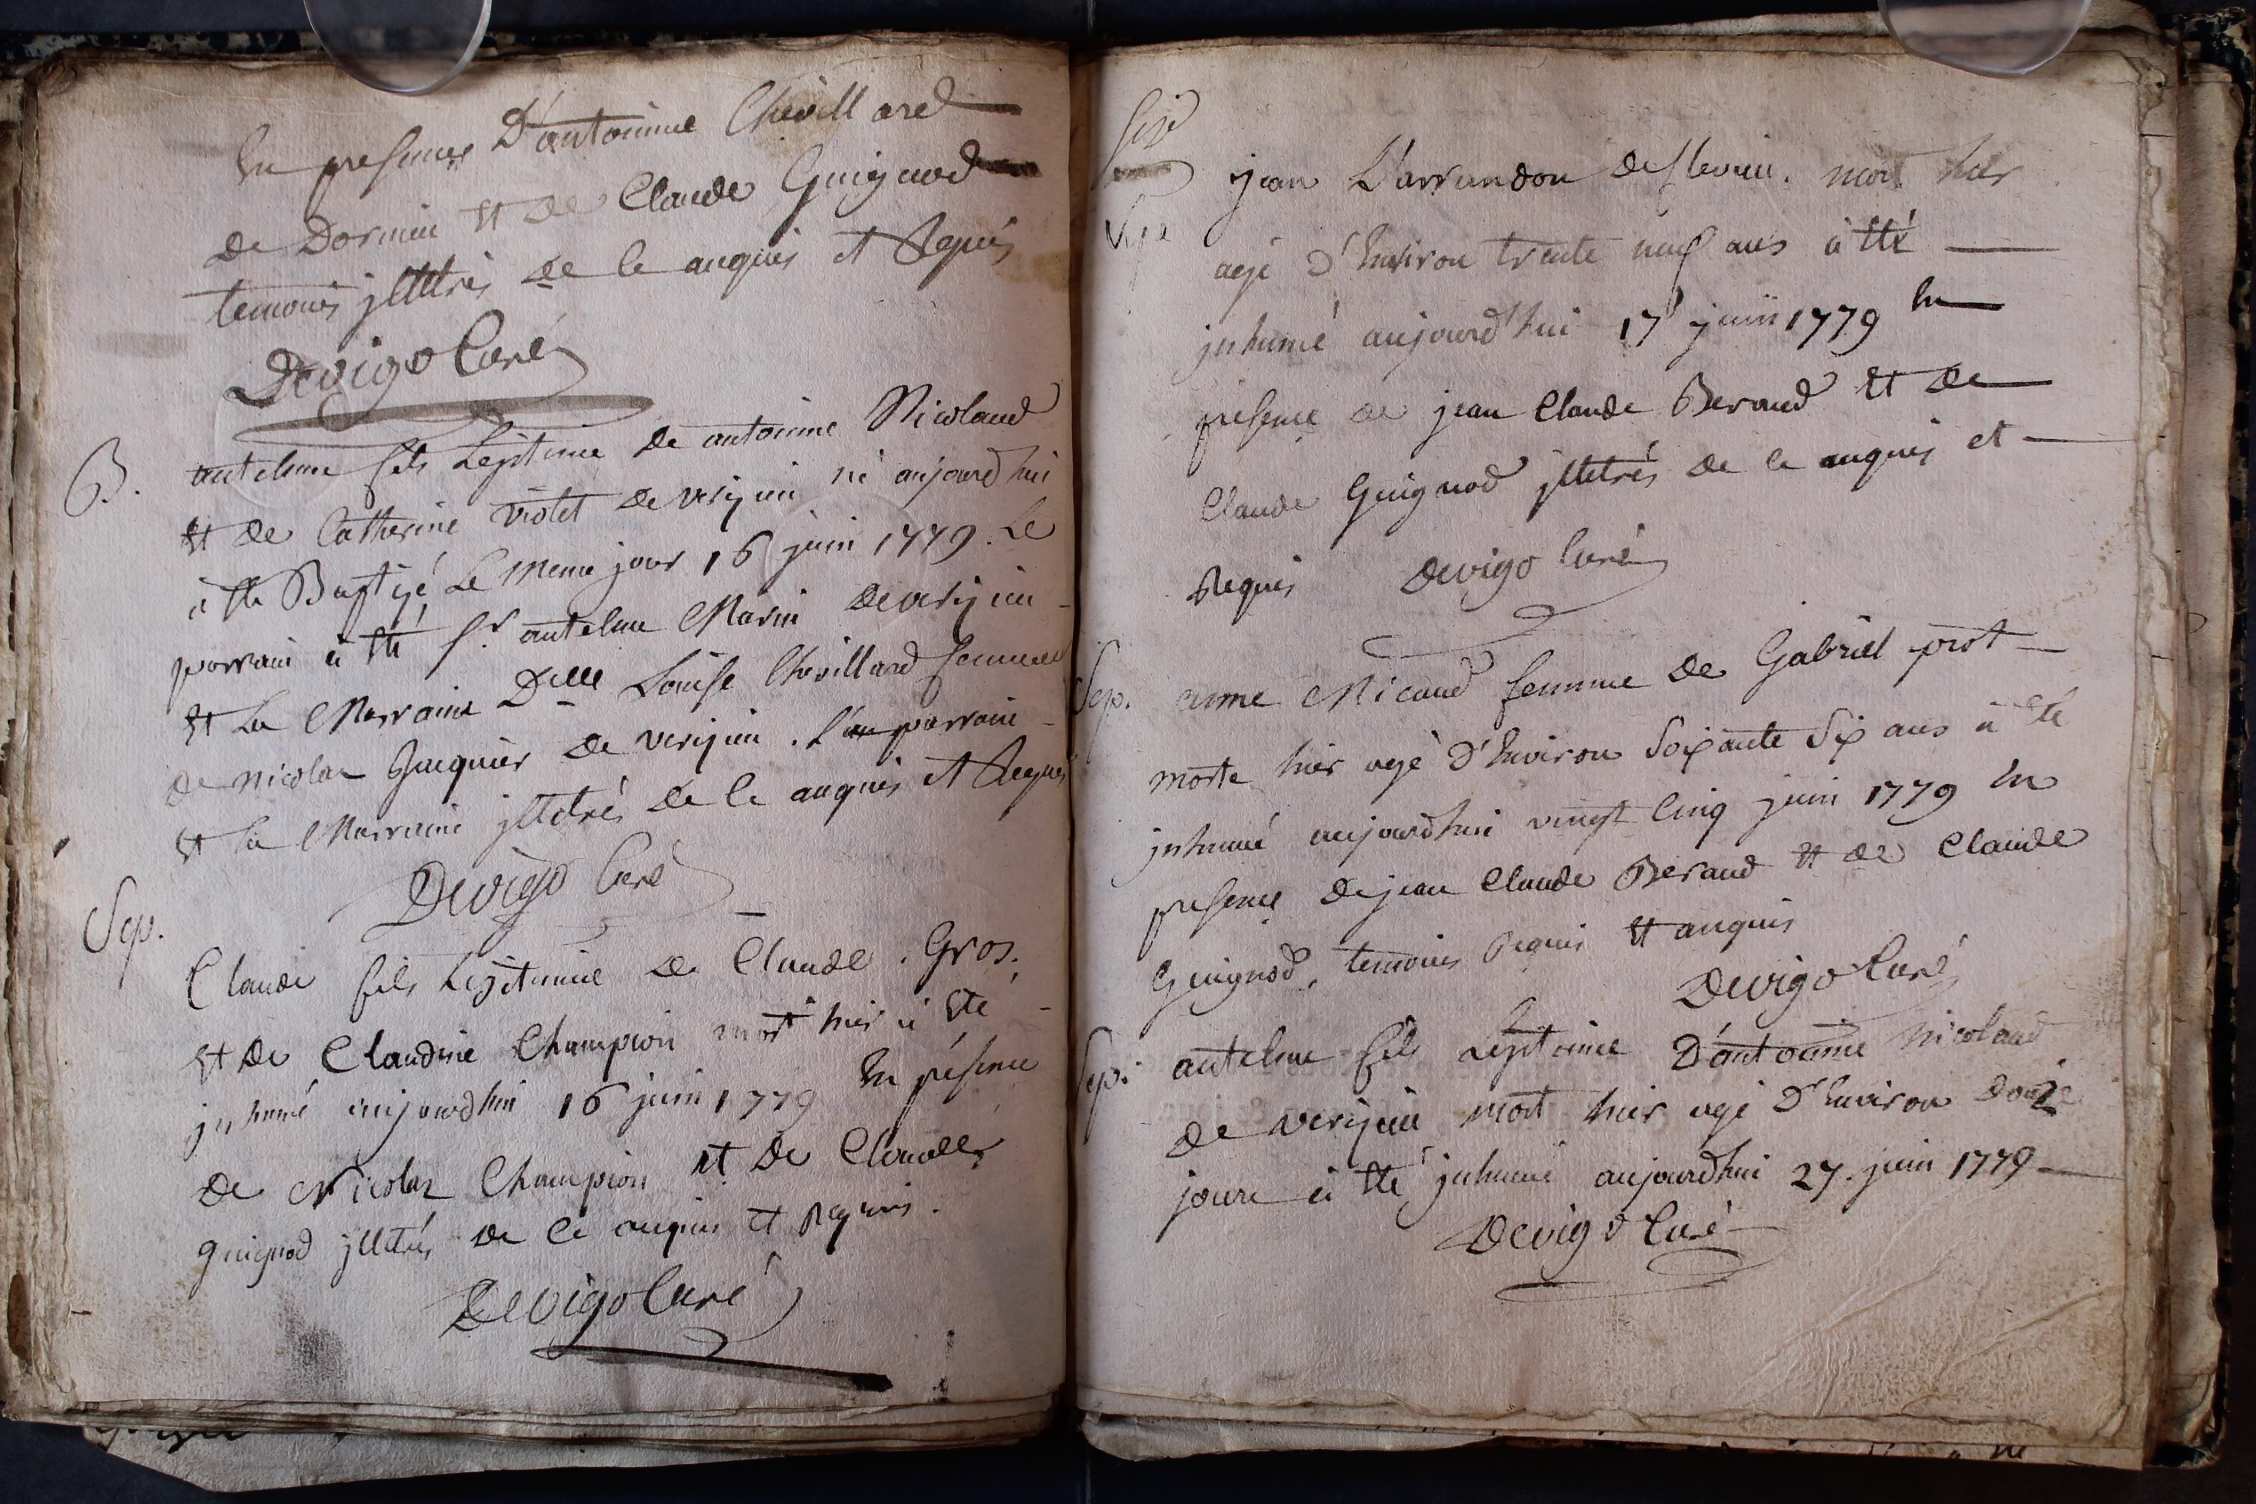 En presence D'antoinne Chevillard
de Dornin Et de Claude Guignod
temoins jlletrés de ce anquis et Requis
Devigo Curé
B. antelme fils Legitime de antoinne Nicoland
Et de Catherine violet de verijin né aujourd'hui
à été Baptizé Le meme jour 16 juin 1779. Le
parrain à été Sr. antelme Marin de verijin
Et La Marraine Dlle Louise Chevillard femme
de Nicolas Juquier de verijin. parrain
Et la Marraine jlletrés de ce anquis et Requis
Devigo Curé
Sep.
Claude fils Legitime de Claude Gros.
Et de Claudine Champion mort hier à été
jnhumé aujourdhui 16 juin 1779 En présence
de Nicolas Champion et de Claude
guignod jlletrés de ce anquis et Requis.
Devigo Curé
jean mort hier
agé d'Environ trente neuf ans à été
jnhumé aujourd'hui 17 juin 1779 En
presence de jean Claude Beraud Et de
Claude Guignod jlletrés de ce anquis et
Requis Devigo Curé
Sep. anne Micaud femme de Gabriel prot
morte hier agé d'Environ Soixante Six ans à été
jnhumé aujourdhui vingt Cinq juin 1779 En
presence de jean Claude Beraud Et de Claude
Guignod, temoins Requis Et anquis
Devigo Curé
Sep. antelme fils Legitime D'antoinne Nicoland
de verijin mort hier agé D'Environ douze
jours à été jnhumé aujourdhui 27. juin 1779
Devigo Curé